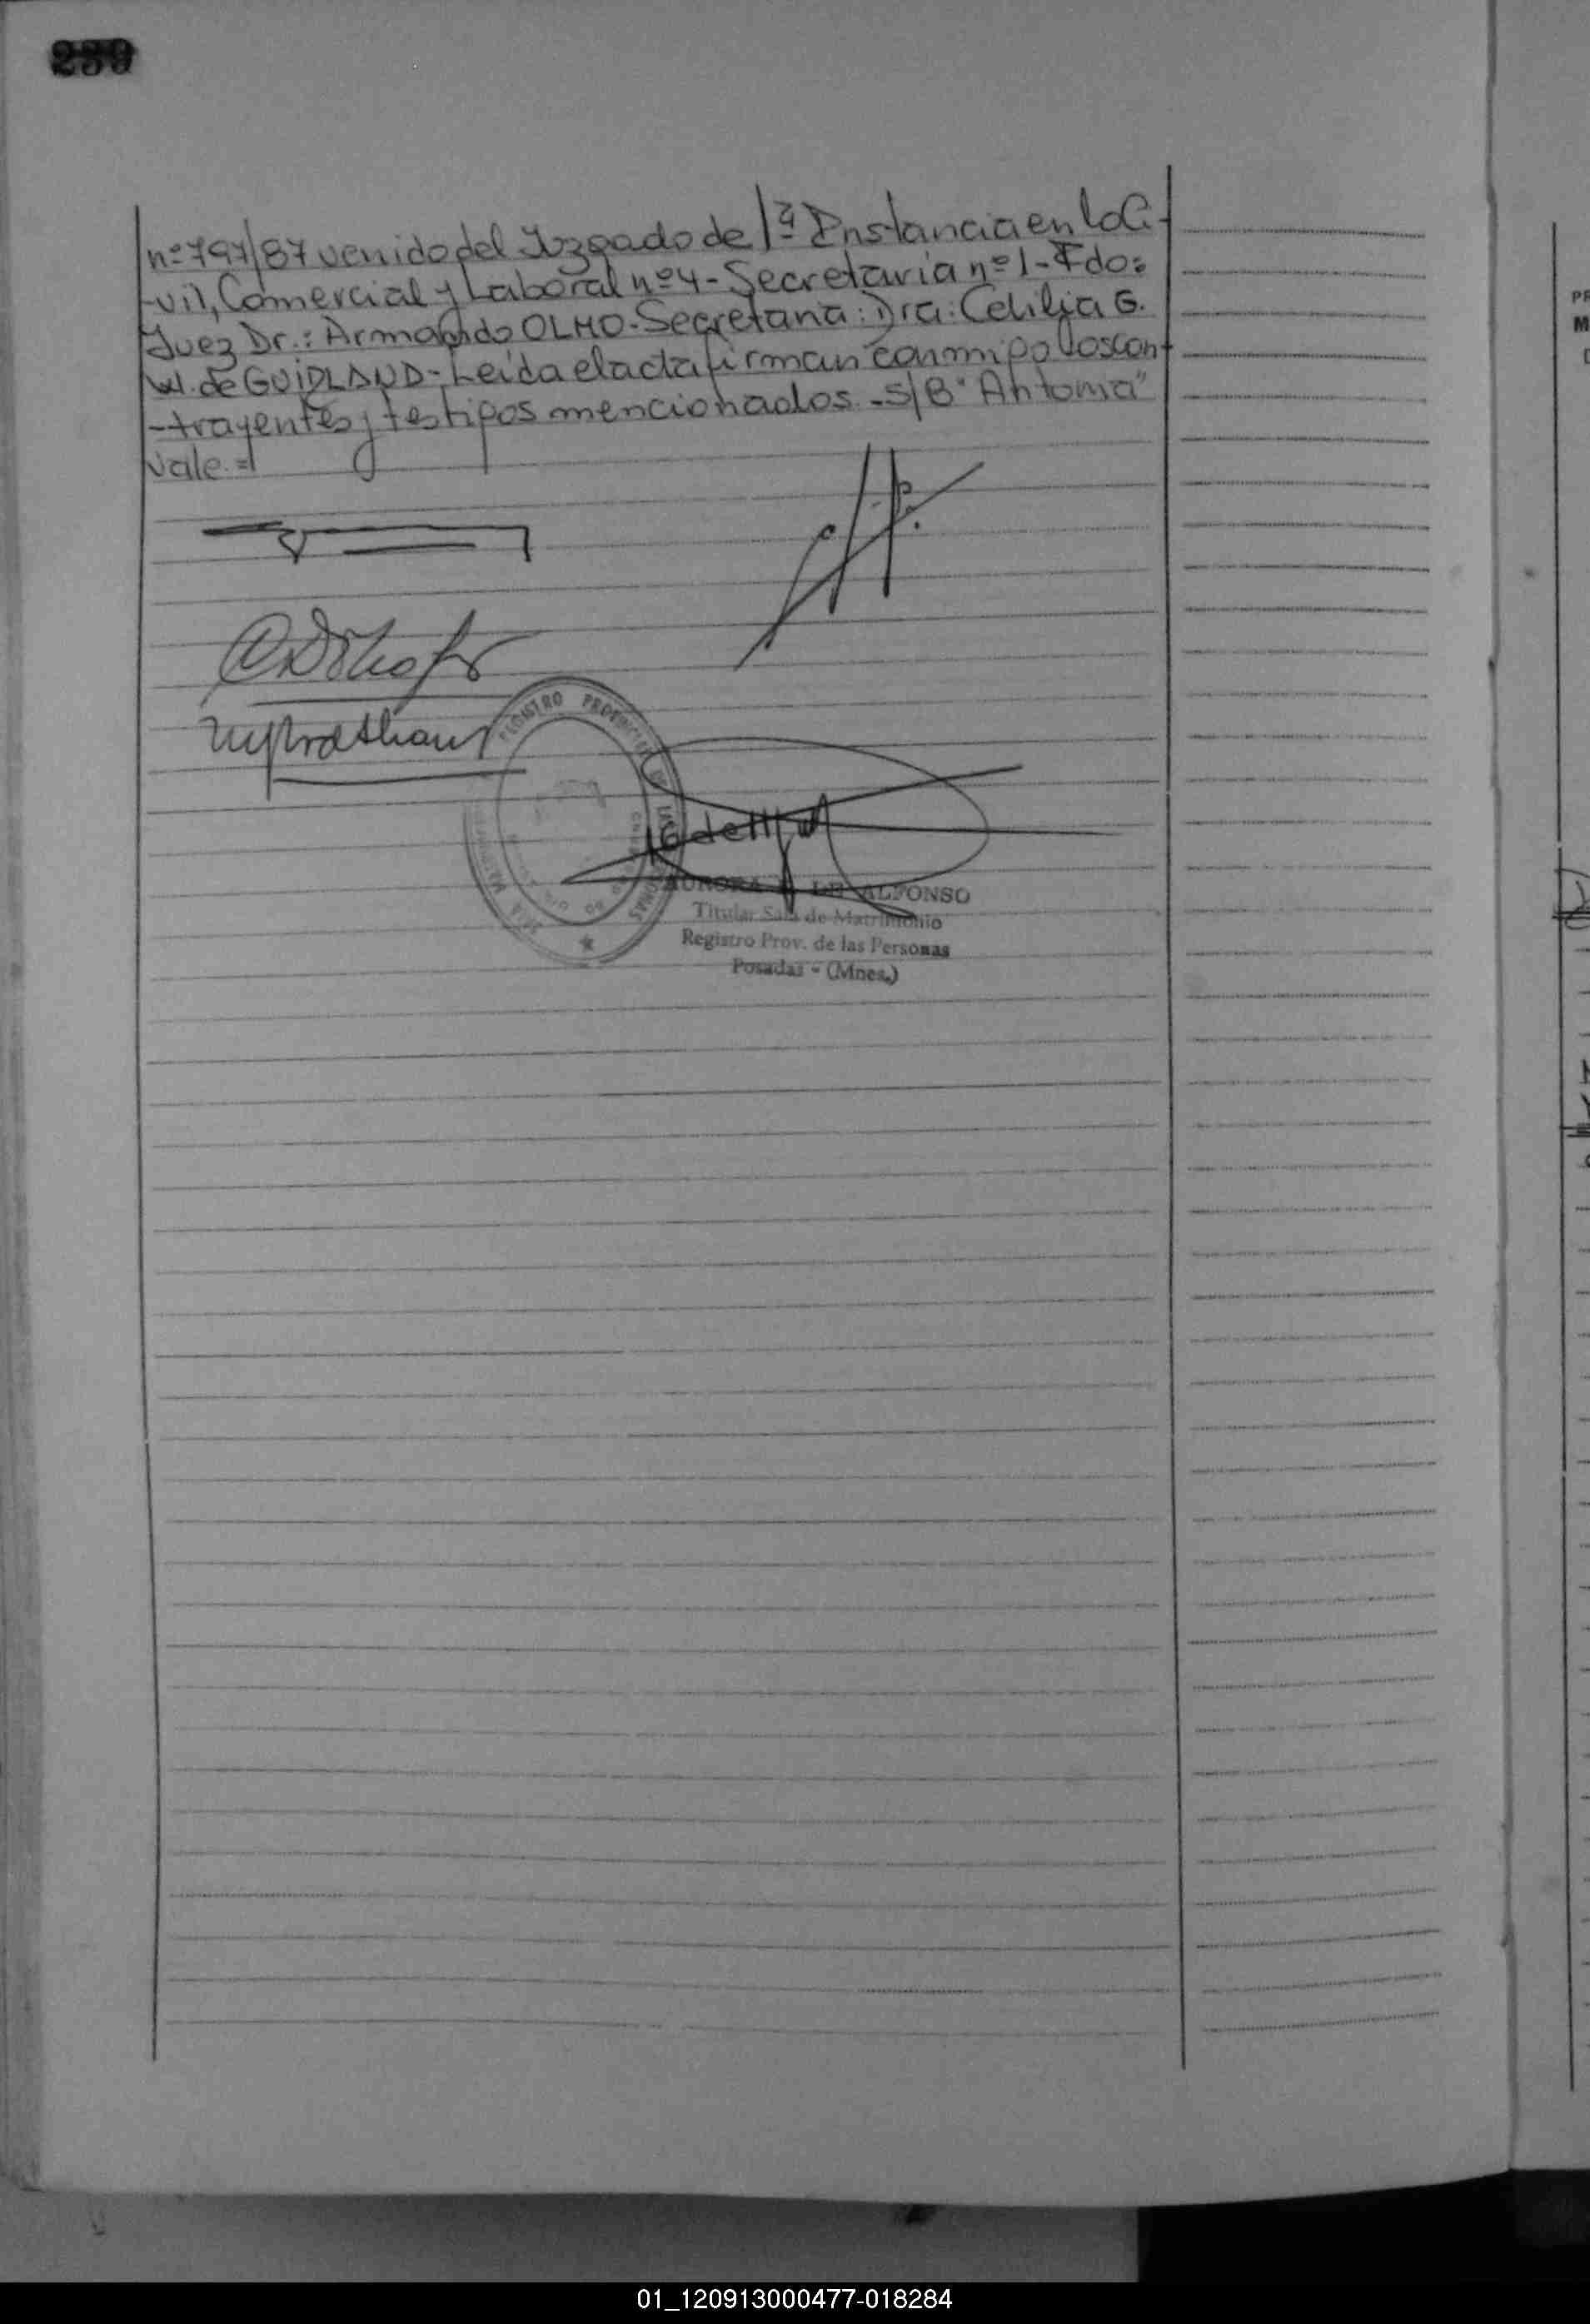 239
nº 797/87 venido del Juzgado de 1ª Instancia en lo Ci-
-vil, Comercial y Laboral nº 4 - Secretaria nº 1 - Fdo:
Juez Dr.: Armando OLMO - Secretaria: Dra: Celilia G.
W. de GUIDLAUD - Leida el acta firman conmigo los con-
-trayentes y testigos mencionados. - S/B "Antoma"
vale. =
REGISTRO PROVINCIAL DE LAS PERSONAS
AURORA LE ALFONSO
Titular Sala de Matrimonio
Registro Prov. de las Personas
Posadas - (Mnes.)
PR
M
01_120913000477-018284